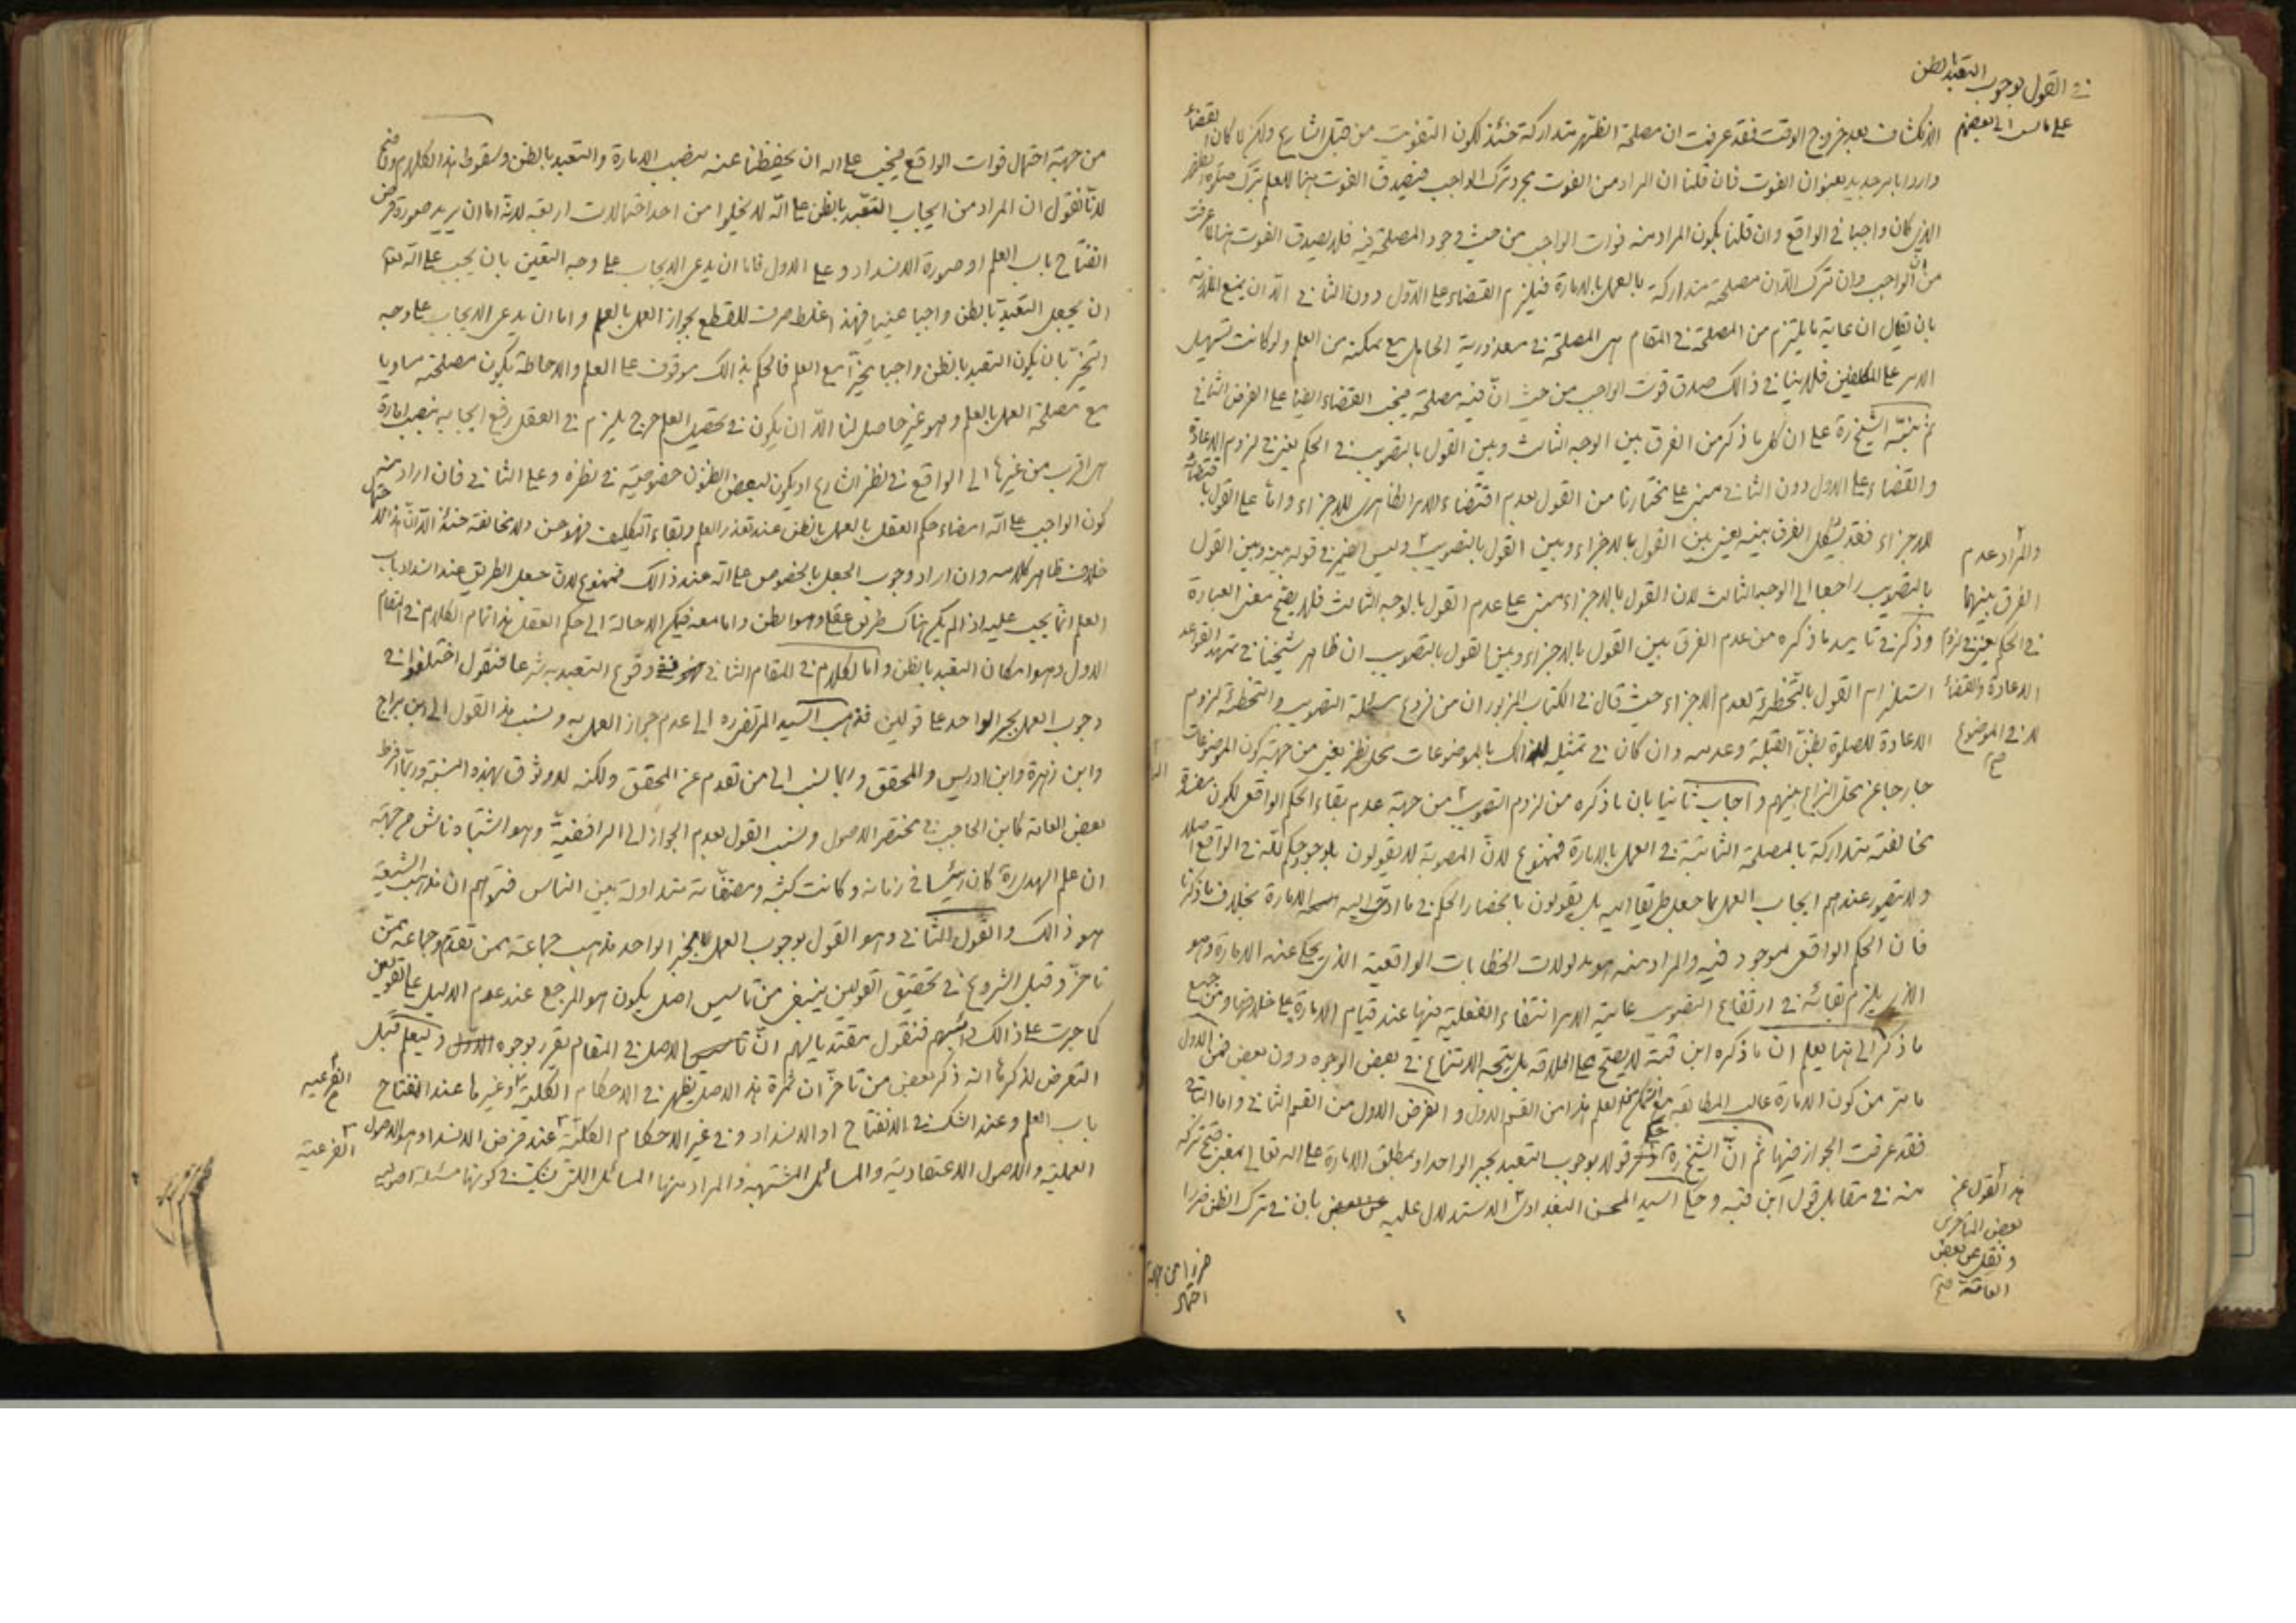 في القول بوجوب التعبد بالظن
على الله الى بعضهم
الانكشاف بعد خروج الوقت فقد عرفت ان مصلحة الظهر متداركة حينئذ لكون التفويت من قبل الشارع ولكن لما كان القضاء
واردا بامر جديد بعنوان الفوت فان قلنا ان المراد من الفوت مجرد ترك الواجب فيصدق الفوت هنا للعلم بترك صلوة الظهر
الذي كان واجبا في الواقع وان قلنا بكون المراد منه فوات الواجب من حيث وجود المصلحة فيه فلا يصدق الفوت هنا لما عرفت
من ان الواجب وان ترك الا ان مصلحته متداركة بالعمل بالامارة فيلزم القضاء على الاول دون الثاني الا ان يمنع الملازمة
بان يقال ان غاية ما يلتزم من المصلحة في المقام هي المصلحة في معذورية الجاهل مع تمكنه من العلم ولو كانت تسهيل
الامر على المكلفين فلا ينافي ذالك صدق فوت الواجب من حيث ان فيه مصلحة فيجب القضاء ايضا على الفرض الثاني
ثم نبه الشيخ ره على ان كل ما ذكر من الفرق بين الوجه الثالث وبين القول بالتصويب في الحكم يعني في لزوم الاعادة
والقضاء على الاول دون الثاني مبني على مختارنا من القول بعدم اقتضاء الامر الظاهري للاجزاء واما على القول باقتضائه
للاجزاء فقد يشكل الفرق بينه يعني بين القول بالاجزاء وبين القول بالتصويب وليس الضمير في قوله بينه وبين القول
بالتصويب راجعا الى الوجه الثالث لان القول بالاجزاء مبني على عدم القول بالوجه الثالث فلا يصح معنى العبارة
وذكر في تاييد ما ذكره من عدم الفرق بين القول بالاجزاء وبين القول بالتصويب ان ظاهر شيخنا في تمهيد القواعد
استلزام القول بالتخطئة لعدم الاجزاء حيث قال في الكتاب المزبور ان من فروع مسئلة التصويب والتخطئة لزوم
الاعادة للصلوة بظن القبلة وعدمه وان كان في تمثيله لذالك بالموضوعات محل نظر يعني من جهة كون الموضوعات
خارجا عن محل النزاع بينهم واجاب ثانيا بان ما ذكره من لزوم التصويب من جهة عدم بقاء الحكم الواقعي لكون مفسدة
مخالفته متداركة بالمصلحة الثابتة في العمل بالامارة فممنوع لان المصوبة لا يقولون بوجود حكم لله في الواقع اصلا
ولا يتصور عندهم ايجاب العمل بما جعل طريقا اليه بل يقولون بانحصار الحكم في ما ادى اليه الامارة بخلاف ما ذكرنا
فان الحكم الواقعي موجود فيه والمراد منه هو مدلولات الخطابات الواقعية الذي يحكي عنه الامارة وهو
الذي يلزم بقائه في ارتفاع التصويب غاية الامر انتفاء الفعلية منها عند قيام الامارة على خلافها ومن جميع
ما ذكر الى هنا يعلم ان ما ذكره ابن قبة لا يصح على اطلاقه بل يتجه الامتناع في بعض الوجوه دون بعض فمن الاول
ما مر من كون الامارة غالب المطابقة مع التمكن من العلم هذا من القسم الاول والفرض الاول من القسم الثاني واما الثاني
فقد عرفت الجواز فيها ثم ان الشيخ ره ذكر قولا بوجوب التعبد بخبر الواحد او بمطلق الامارة على الله تعالى بمعنى قبح تركه
منه في مقابل قول ابن قبة وحكى السيد المحسن البغدادي الاستدلال عليه عن بعض بان في ترك الظن ضررا
والمراد عدم
الفرق بينهما
في الحكم يعني في لزوم
الاعادة والقضاء
لا في الموضوع
صح
هذا القول عن
بعض المتاخرين
ونقل عن بعض
العامة صح
ضررا من جهة
احتمال
من جهة احتمال فوات الواقع فيجب على الله ان يحفظنا عنه بنصب الامارة والتعبد بالظن وسقوط هذا الكلام واضح
لانا نقول ان المراد من ايجاب التعبد بالظن على الله لا يخلوا من احد احتمالات اربعة لانه اما ان يريد صورة فرض
انفتاح باب العلم او صورة الانسداد وعلى الاول فاما ان يدعي الايجاب على وجه التعيين بان يجب على الله تعالى
ان يجعل التعبد بالظن واجبا عينيا فهذا غلط صرف للقطع بجواز العمل بالعلم واما ان يدعي الايجاب على وجه
التخيير بان يكون التعبد بالظن واجبا مخيرا مع العلم فالحكم بذالك موقوف على العلم والاحاطة بكون مصلحته مساويا
مع مصلحة العمل بالعلم وهو غير حاصل لنا الا ان يكون في تحصيل العلم حرج يلزم في العقل رفع ايجابه بنصب امارة
هي اقرب من غيرها الى الواقع في نظر الشارع او يكون لبعض الظنون خصوصية في نظره وعلى الثاني فان اراد منه
كون الواجب على الله امضاء حكم العقل بالعمل بالظن عند تعذر العلم وبقاء التكليف فهو حسن ولا مخالفة حينئذ الا ان هذا الاحتمال
خلاف ظاهر كلامه وان اراد وجوب الجعل بالخصوص على الله عند ذالك فممنوع لان جعل الطريق عند انسداد باب
العلم انما يجب عليه اذا لم يكن هناك طريق عقلي وهو الظن واما معه فيكفي الاحالة الى حكم العقل هذا تمام الكلام في المقام
الاول وهو امكان التعبد بالظن واما الكلام في المقام الثاني فهو في وقوع التعبد به شرعا فنقول اختلفوا في
وجوب العمل بخبر الواحد على قولين فذهب السيد المرتضى ره الى عدم جواز العمل به ونسب هذا القول الى ابن براج
وابن زهرة وابن ادريس والمحقق وربما نسب الى من تقدم عن المحقق ولكنه لا وثوق بهذه النسبة وربما افرط
بعض العامة كابن الحاجب في مختصر الاصول ونسب القول بعدم الجواز الى الرافضية وهو اشتباه ناش من جهة
ان علم الهدى ره كان رئيسا في زمانه وكانت كتبه ومصنفاته متداولة بين الناس فتوهم ان مذهب الشيعة
هو ذالك والقول الثاني وهو القول بوجوب العمل بخبر الواحد مذهب جماعة ممن تقدم وجماعة ممن
تاخر وقبل الشروع في تحقيق القولين ينبغي من تاسيس اصل يكون هو المرجع عند عدم الدليل على القولين
كما جرت على ذالك دابهم فنقول مقتديا لهم ان تاسيس الاصل في المقام يقرر بوجوه وليعلم قبل
التعرض لذكرها انه ذكر بعض من تاخر ان ثمرة هذا الاصل يظهر في الاحكام الكلية وغيرها عند انفتاح
باب العلم وعند الشك في الانفتاح او الانسداد وفي غير الاحكام الكلية عند فرض الانسداد وهو الاصول
العملية والاصول الاعتقادية والمسائل المشتبهة والمراد منها المسائل التي شك في كونها مسئلة اصولية
الفرعية
صح
الفرعية